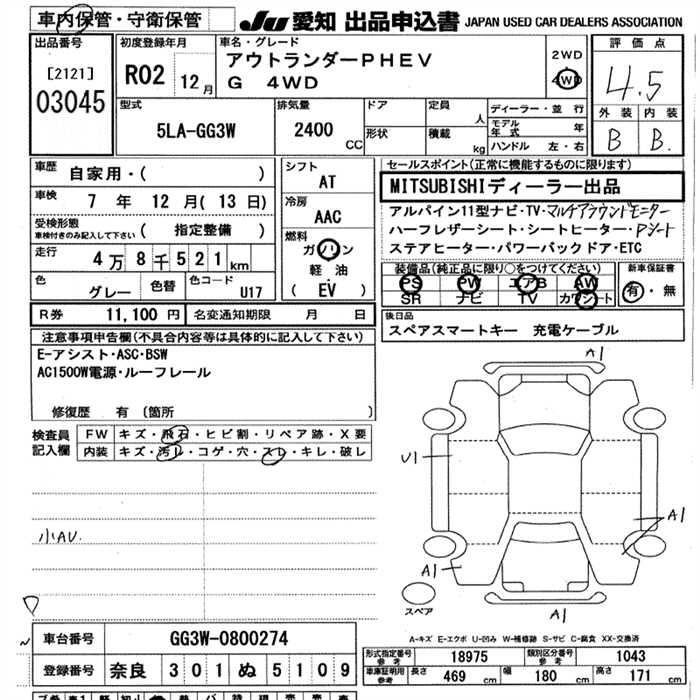 車内保管・守衛保管
JU 愛知 出品申込書 JAPAN USED CAR DEALERS ASSOCIATION
出品番号
[2121]
03045
初度登録年月
R02 12月
車名・グレード
アウトランダーPHEV
G 4WD
2WD
4WD
評価点
4.5
外装 内装
B B.
型式
5LA-GG3W
排気量
2400 CC
ドア
形状
定員 人
積載 kg
ディーラー・並行
モデル年式 年
ハンドル 左・右
車歴
自家用・( )
車検
7年 12月(13日)
受検形態
車検付きのみ記入して下さい
( 指定整備 )
走行
4万8千521km
色
グレー
色替
色コード
U17
シフト
AT
冷房
AAC
燃料
ガソリン
軽・油
( EV )
セールスポイント(正常に機能するものに限ります)
MITSUBISHIディーラー出品
アルパイン11型ナビ・TV・マルチアラウンドモニター
ハーフレザーシート・シートヒーター・Pシート
ステアヒーター・パワーバックドア・ETC
装備品(純正品に限り○をつけてください)
PS PW エアB AW
SR ナビ TV カワシート
新車保証書
有・無
R券 11,100円
名変通知期限 月 日
後日品
スペアスマートキー 充電ケーブル
注意事項申告欄(不具合内容等は具体的に記入して下さい)
E-アシスト・ASC・BSW
AC1500W電源・ルーフレール
修復歴 有 (箇所 )
検査員記入欄
FW キズ・飛石・ヒビ割・リペア跡・X要
内装 キズ・汚レ・コゲ・穴・スレ・キレ・破レ
小AU.
A1
U1
A1
A1
スペア
A1
A-キズ E-エクボ U-凹み W-補修跡 S-サビ C-腐食 XX-交換済
車台番号 GG3W-0800274
登録番号 奈良 301 ぬ 5109
形式指定番号 参考 18975
類別区分番号 参考 1043
車庫証明用 参考 長さ 469 cm 幅 180 cm 高さ 171 cm